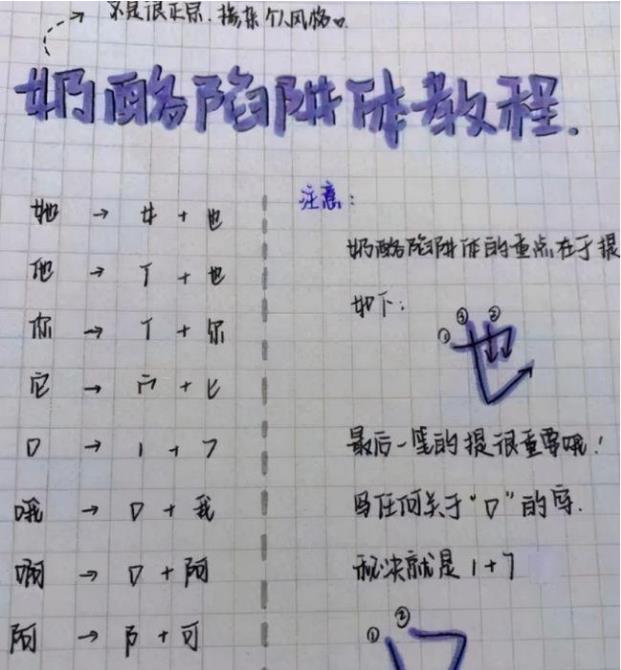 不是很正宗.掺杂个人风格。
奶酪陷阱体教程.
她 → 女 + 也
他 → 亻 + 也
你 → 亻 + 尔
它 → 宀 + 匕
口 → 1 + 7
哦 → 口 + 我
啊 → 口 + 阿
阿 → 阝 + 可
注意:
奶酪陷阱体的重点在于提
如下:
① ③ ② 也
最后一笔的提很重要哦!
写任何关于“口”的字.
秘诀就是 1+7
① ②